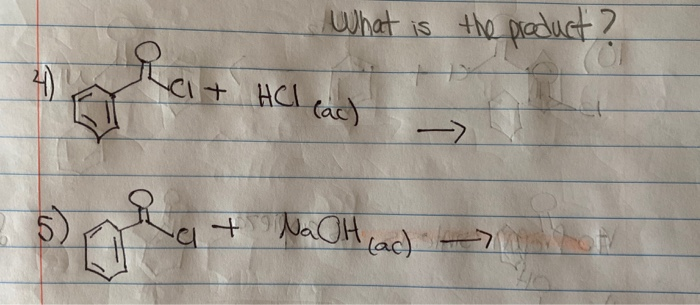 What is the product?
4) O Cl + HCl (ac) →
5) O Cl + NaOH (ac) →